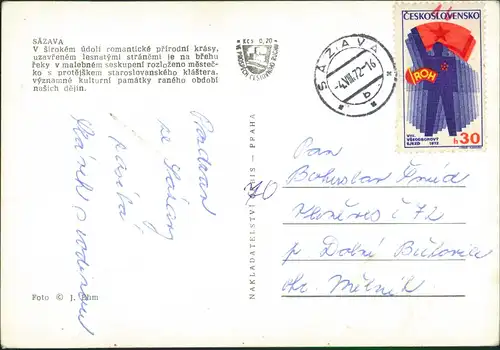 SÁZAVA
V širokém údolí romantické přírodní krásy,
uzavřeném lesnatými stráněmi je na břehu
řeky v malebném seskupení rozloženo městeč-
ko s protějškem staroslovanského kláštera,
významné kulturní památky raného období
našich dějin.
Kčs 0,20
SÁZAVA
-4.VIII.72-16
b
ČESKOSLOVENSKO
ROH
VIII.
VŠEODBOROVÝ
SJEZD 1972
h 30
Pozdrav
ze Sázavy
posílá
s rodinou
NAKLADATELSTVÍ - PRAHA
Pan
Bohuslav
č 72
p. Dolní
okr. Mělník
Foto © J.